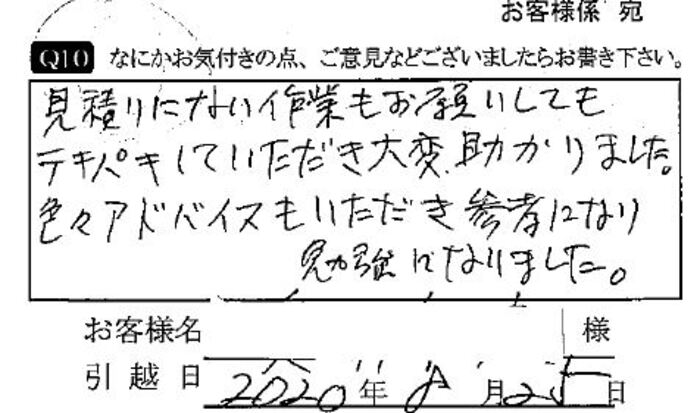 お客様係 宛
Q10 なにかお気付きの点、ご意見などございましたらお書き下さい。
見積りにない作業もお願いしても
テキパキしていただき大変助かりました。
色々アドバイスもいただき参考になり
勉強になりました。
お客様名 様
引越日 2020年 8月25日